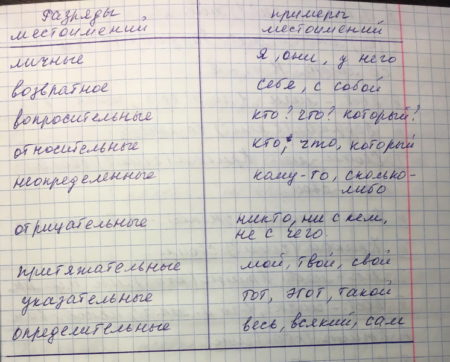 Разряды местоимений	примеры местоимений
личные	я, они, у него
возвратное	себя, с собой
вопросительные	кто? что? который?
относительные	кто, что, который
неопределенные	кому-то, сколько-либо
отрицательные	никто, ни с кем, не с чего
притяжательные	мой, твой, свой
указательные	тот, этот, такой
определительные	весь, всякий, сам